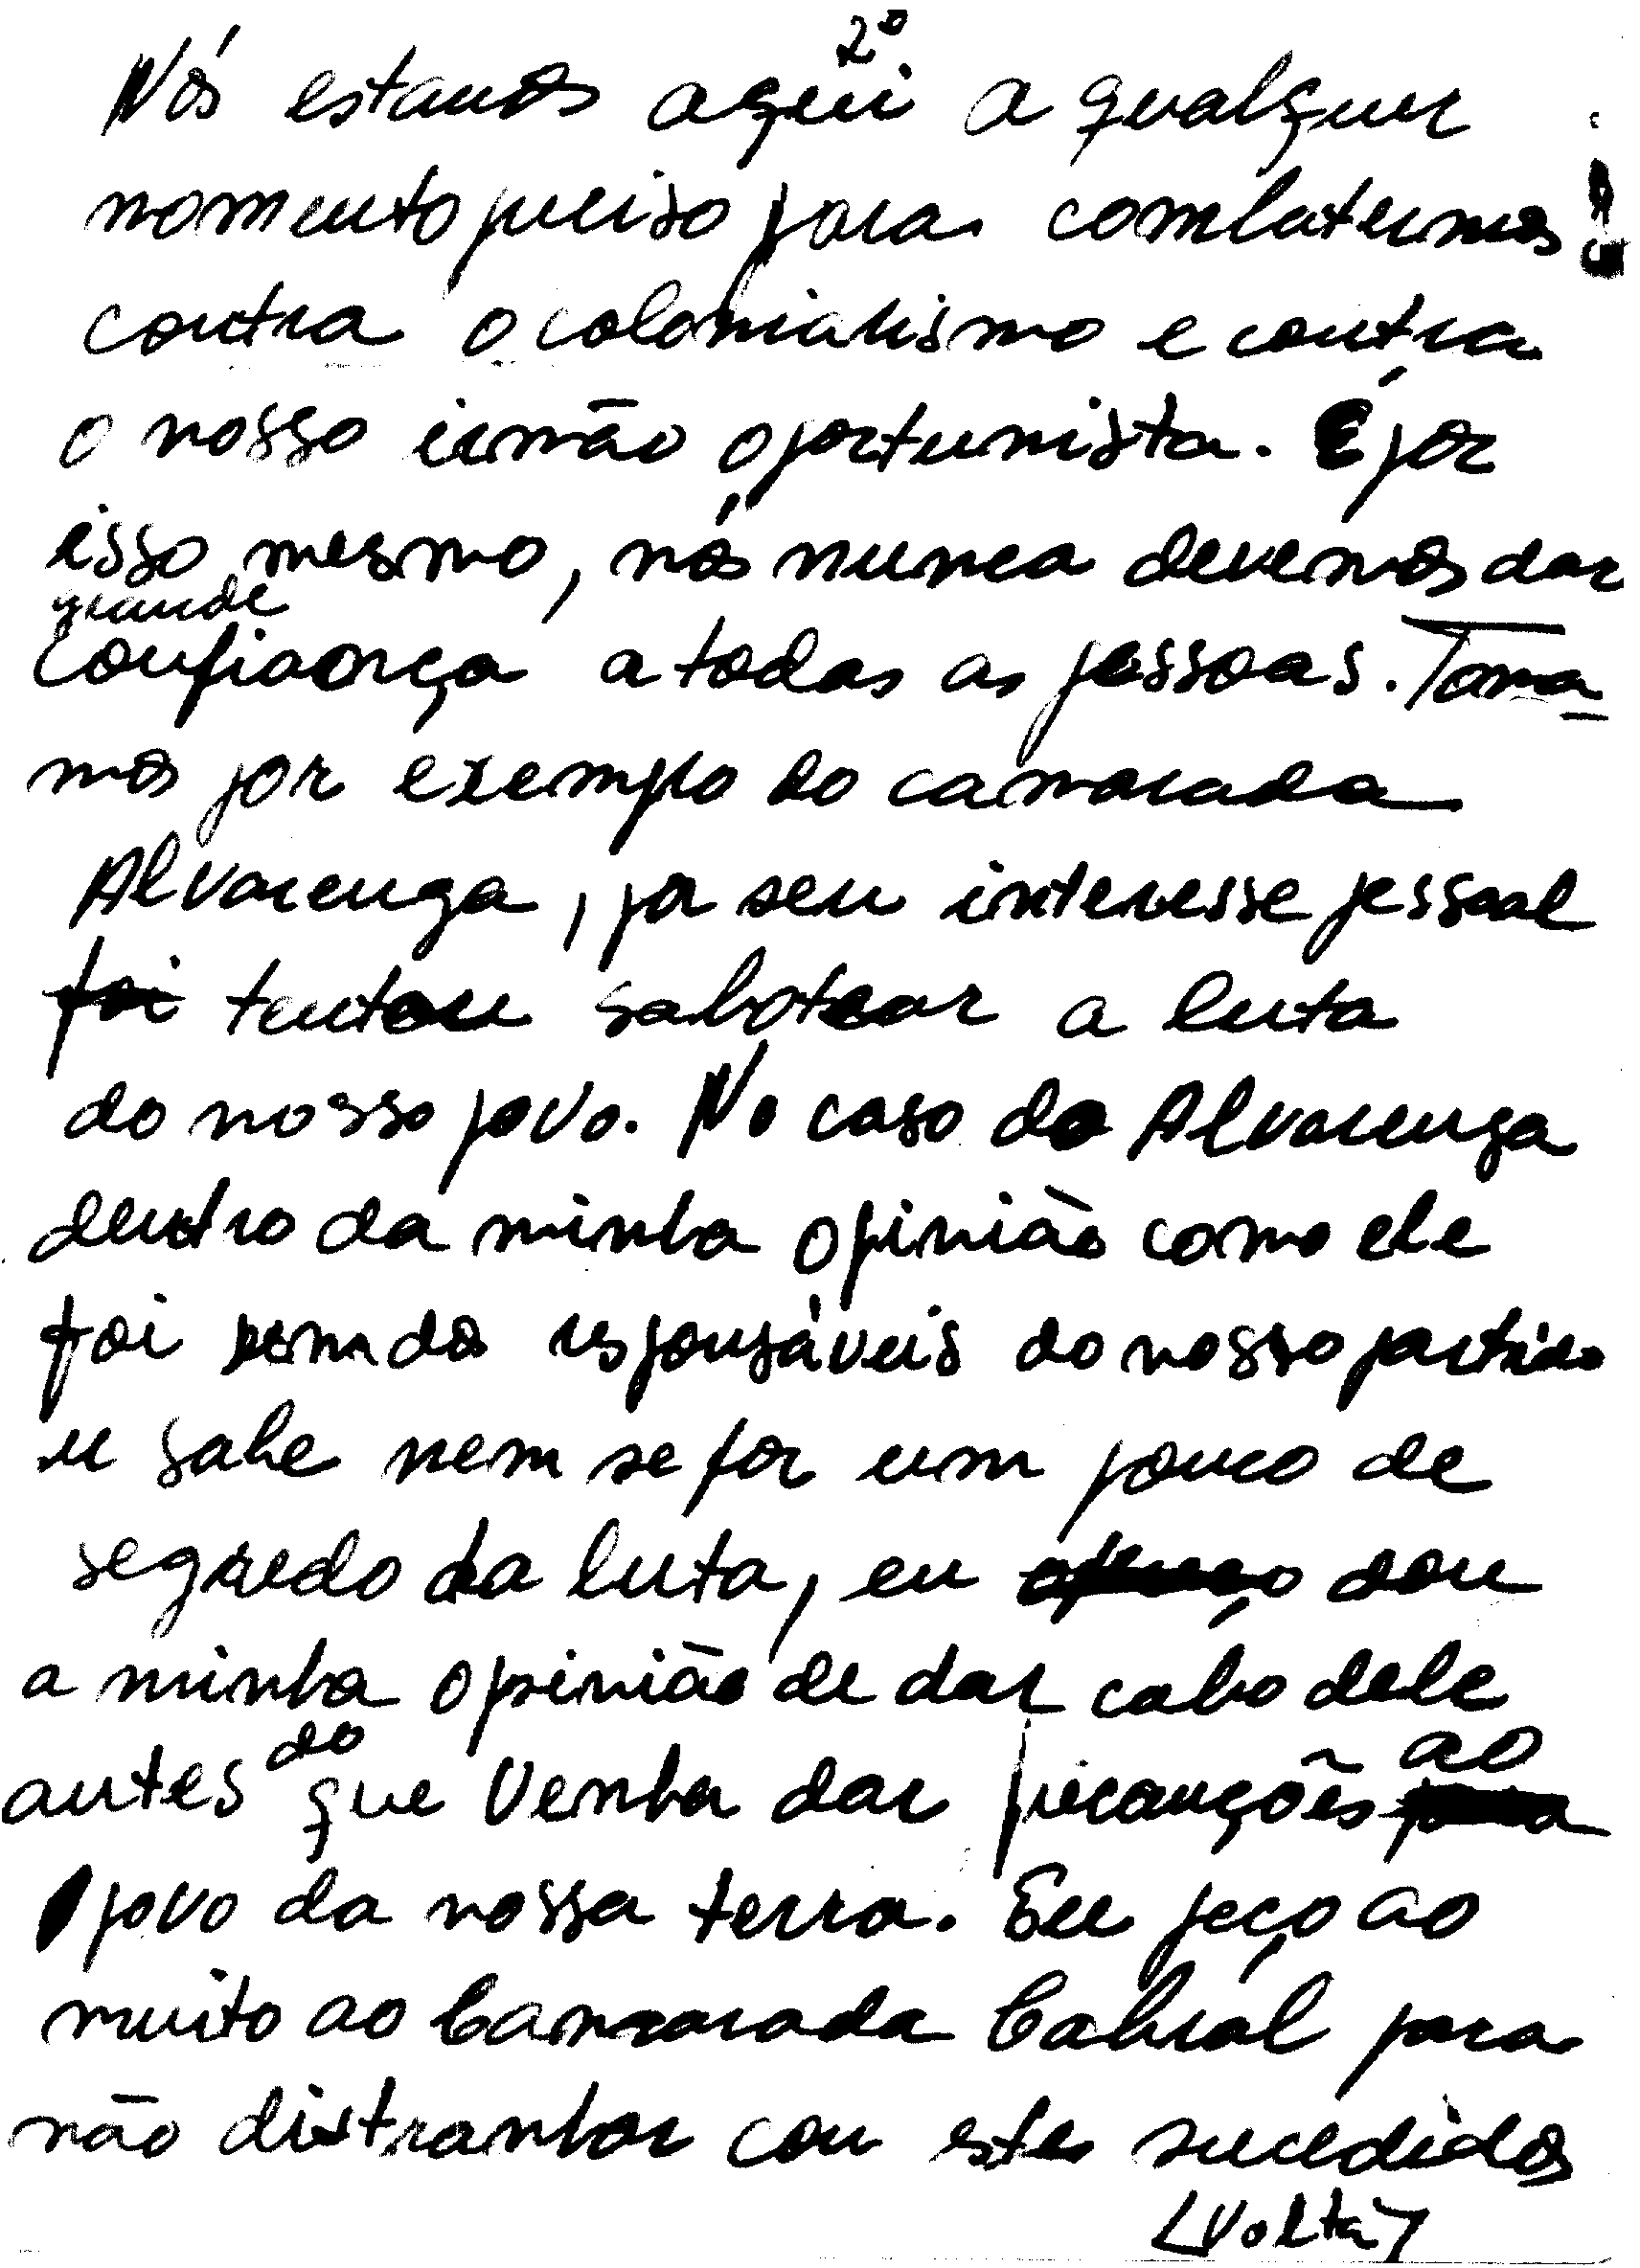 2º
Nós estamos aqui a qualquer
momento preciso para combatermos
contra o colonialismo e contra
o nosso irmão oportunista. É por
isso mesmo, nós nunca devemos dar
grande
confiança a todas as pessoas. Toma-
mos por exemplo do camarada
Alvarenga, por seu interesse pessoal
foi tentou sabotear a luta
do nosso povo. No caso do Alvarenga
dentro da minha opinião como ele
foi um dos responsáveis do nosso partido
e sabe nem se for um pouco de
segredo da luta, eu dou
a minha opinião de dar cabo dele
antes do que venha dar precauções ao
povo da nossa terra. Eu peço ao
muito ao Camarada Cabral para
não distranhar com estes sucedidos
(Volta)